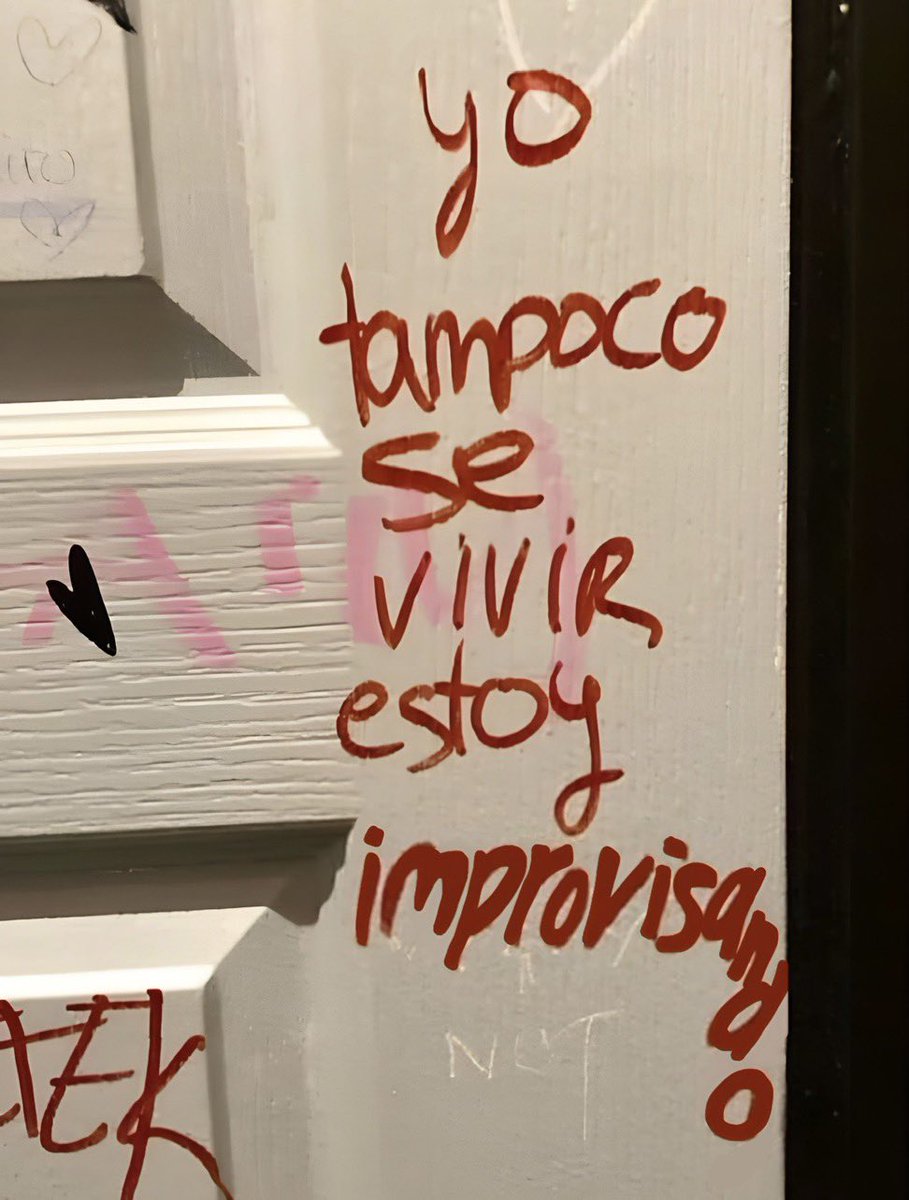 yo
tampoco
se
vivir
estoy
improvisando
NUT